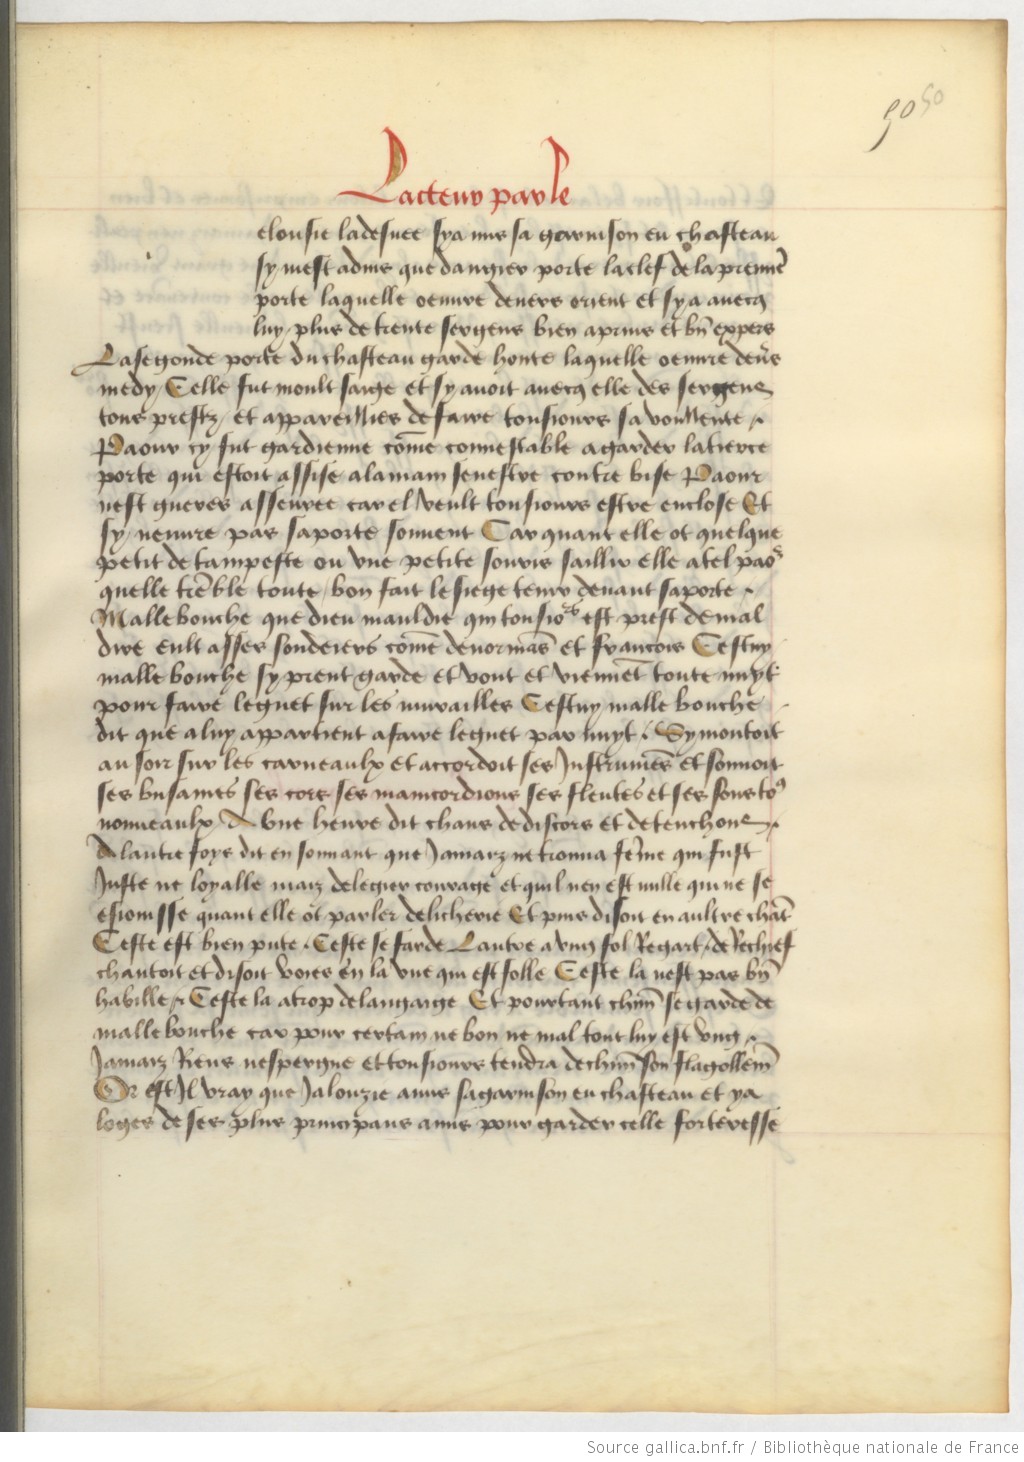 50 50
Lacteur parle
elousie ladesuee sya mis sa garnison eu chasteau
sy mest admis que dangier porte la clef de la premiē
porte laquelle oeuure deuers orient et sy a auecq
luy plus de trente sergens bien aprins et bn̄ expers
La segonde porte du chasteau garde honte laquelle oeuure deūs
medy / Celle fut moult saige et sy auoit auecq elle des sergens
tous prestz / et appareillies de faire tousiours sa voullente /.
Paour cy fut gardienne cōme connestable a garder la tierce
porte qui estoit assise a la main senestre contre bise Paour
nest gueres asseuree car el veult tousiours estre enclose Et
sy neuure pas sa porte souuent Car quant elle ot quelque
petit de tampeste ou vne petite souris saillir elle a tel paoͬ
quelle trēble toute / bon fait le siege tenir deuant sa porte /.
Malle bouche que dieu mauldie qui tousioͬs est prest de mal
dire eult asses soudeiers cōme de normās et francois Cestuy
malle bouche sy prent garde et vont et viennēt toute nuyt
pour faire le guet sur les murailles Cestuy malle bouche
dit que a luy appartient a faire le guet par nuyt /. Sy montoit
au soir sur les carneaulx et accordoit ses Instrumēs et sonnoit
ses busames ses cors ses manicordions ses fleutes et ses sons to⁹
nouueaulx / A vne heure dit chans de discors et de tenchons /.
A lautre foys dit en sonnant que Jamaiz ne trouua fēme qui fust
Juste ne loyalle maiz de legier courage et quil nen est nulle qui ne se
esiouisse quant elle ot parler de licherie Et puis disoit en aultre chāt
Ceste est bien pute . Ceste se farde Lautre a vng fol Regart /. de Rechief
chantoit et disoit voies en la vne qui est folle Ceste la nest pas bn̄
habille /. Ceste la a trop de langaige Et pourtant chūn se garde de
malle bouche car pour certain ne bon ne mal tout luy est vng /.
Jamaiz Riens nespergne et tousiours tendra de chūn son flagollemēt
Or est Jl vray que Jalouzie a mis sa garnison eu chasteau et y a
loges de ses plus principaus amis pour garder celle forteresse
Source gallica.bnf.fr / Bibliothèque nationale de France